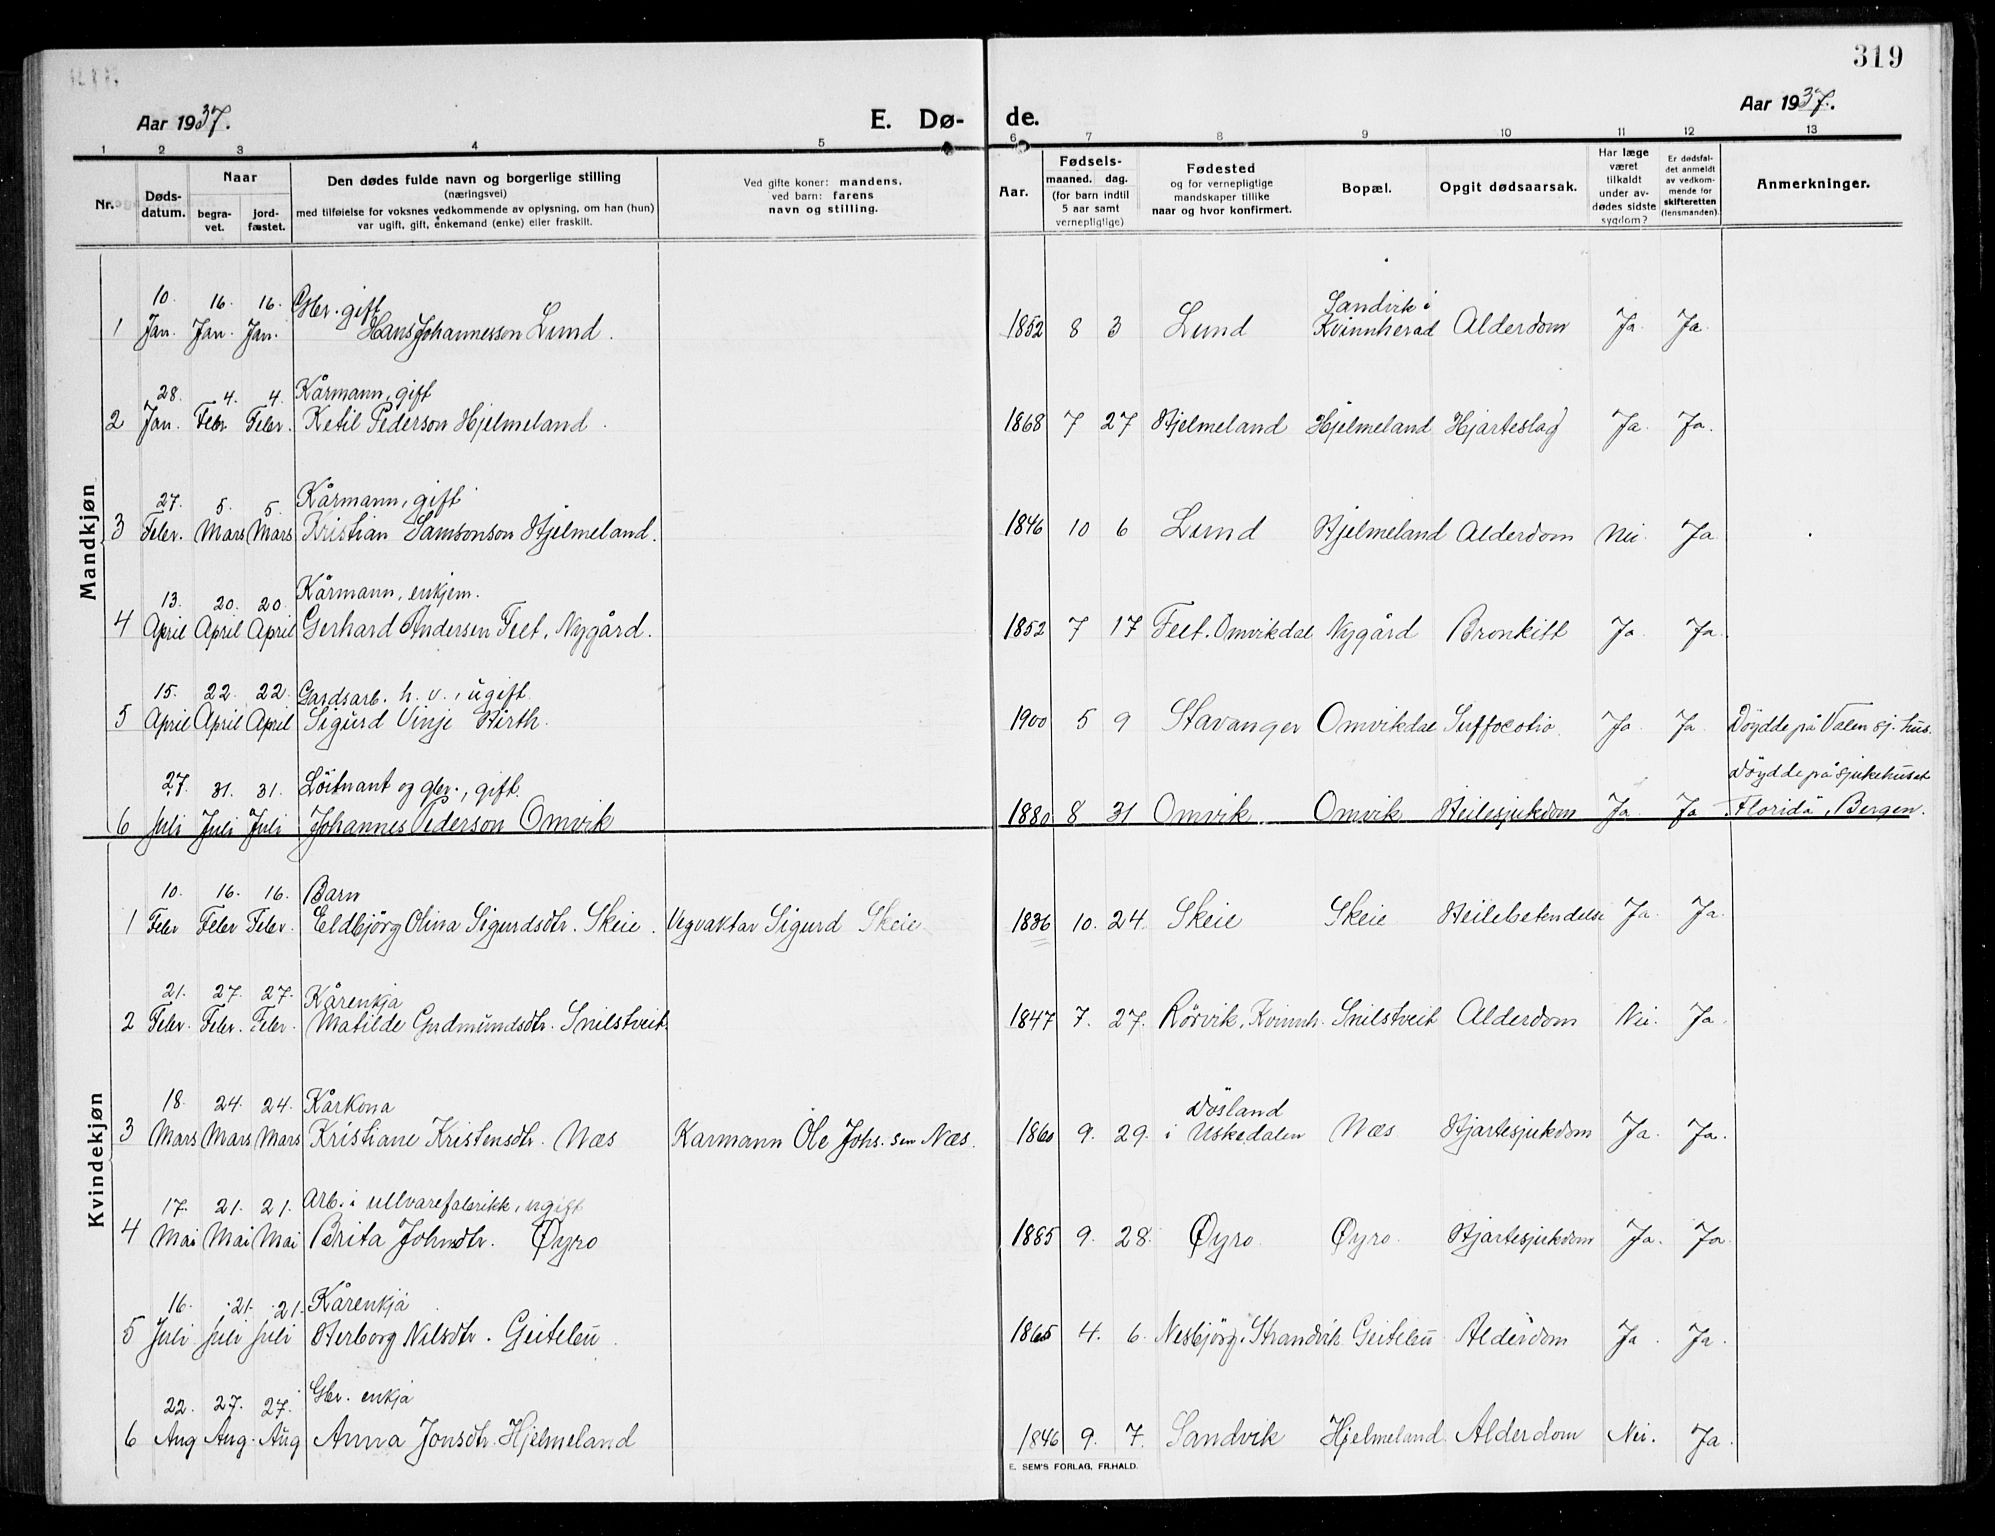 319
Aar 1937. E. Dø- de. Aar 1937.
1 2 3 4 5 6 7 8 9 10 11 12 13
Nr. Døds-datum. Naar begra-vet. jord-fæstet. Den dødes fulde navn og borgerlige stilling (næringsvei) med tilføielse for voksnes vedkommende av oplysning, om han (hun) var ugift, gift, enkemand (enke) eller fraskilt. Ved gifte koner: mandens, ved barn: farens navn og stilling. Aar. Fødsels- maaned. dag. (for barn indtil 5 aar samt vernepligtige) Fødested og for vernepligtige mandskaper tillike naar og hvor konfirmert. Bopæl. Opgit dødsaarsak. Har læge været tilkaldt under av-dødes sidste sygdom? Er dødsfal-det anmeldt av vedkom-mende for skifteretten (lensmanden). Anmerkninger.
Mandkjøn
10. 16. 16. Gbr. gift Sandvik i
1 Jan. Jan. Jan. Hans Johannesson Lund. 1852 8 3 Lund Kvinnherad Alderdom Ja Ja.
28. 4. 4. Kårmann, gift
2 Jan. Febr Febr. Ketil Pederson Hjelmeland. 1868 7 27 Hjelmeland Hjelmeland Hjarteslag Ja. Ja.
27. 5. 5. Kårmann, gift
3 Febr. Mars Mars Kristian Samsonson Hjelmeland. 1846 10 6 Lund Hjelmeland Alderdom Nei. Ja
13. 20. 20. Kårmann, enkjem.
4 April April April Gerhard Andersen Feet, Nygård. 1852 7 17 Feet. Omvikdal Nygård Bronkitt Ja Ja.
15. 22. 22. Gardsarb. h. v., ugift.
5 April April April Sigurd Vinje Hirth. 1900 5 9 Stavanger Omvikdal Ja Ja. Døydde på Valen sj. hus.
27. 31. 31. Løitnant og gbr., gift. Døydde på sjukehuset
6 Juli Juli Juli Johannes Pederson Omvik 1880 8 31 Omvik. Omvik Heilesjukdom Ja Ja Florida, Bergen.
Kvindekjøn
10. 16. 16. Barn
1 Febr Febr Febr. Eldbjørg Olina Sigurdsdtr. Skeie. Vegvaktar Sigurd Skeie. 1836 10. 24. Skeie Skeie Heilebetendelse Ja. Ja.
21. 27. 27. Kårenkja
2 Febr. Febr. Febr. Matilde Gudmundsdtr. Snilstveit. 1847 7. 27. Rørvik, Kvinnh. Snilstveit Alderdom Nei. Ja.
18. 24. 24. Kårkona Døsland
3 Mars Mars Mars Kristiane Kristensdtr. Næs Karmann Ole Johs. sen Næs. 1860 9. 29. i Uskedalen Næs Hjartesjukdom Ja. Ja.
17. 21. 21. Arb. i ullvarefabrikk, ugift
4 Mai Mai Mai Brita Johnsdtr. Øyro 1885 9. 28. Øyro. Øyro. Hjartesjukdom Ja. Ja.
16. 21. 21. Kårenkja
5 Juli Juli Juli Herborg Nilsdtr. Geiteleu. 1865 4. 6. Nesbjørg i Strandvik Geiteleu Alderdom Ja. Ja.
22. 27. 27. Gbr. enkja
6 Aug Aug. Aug Anna Jonsdtr. Hjelmeland 1846 9. 7. Sandvik Hjelmeland. Alderdom Nei. Ja.
E. SEM'S FORLAG, FR.HALD.